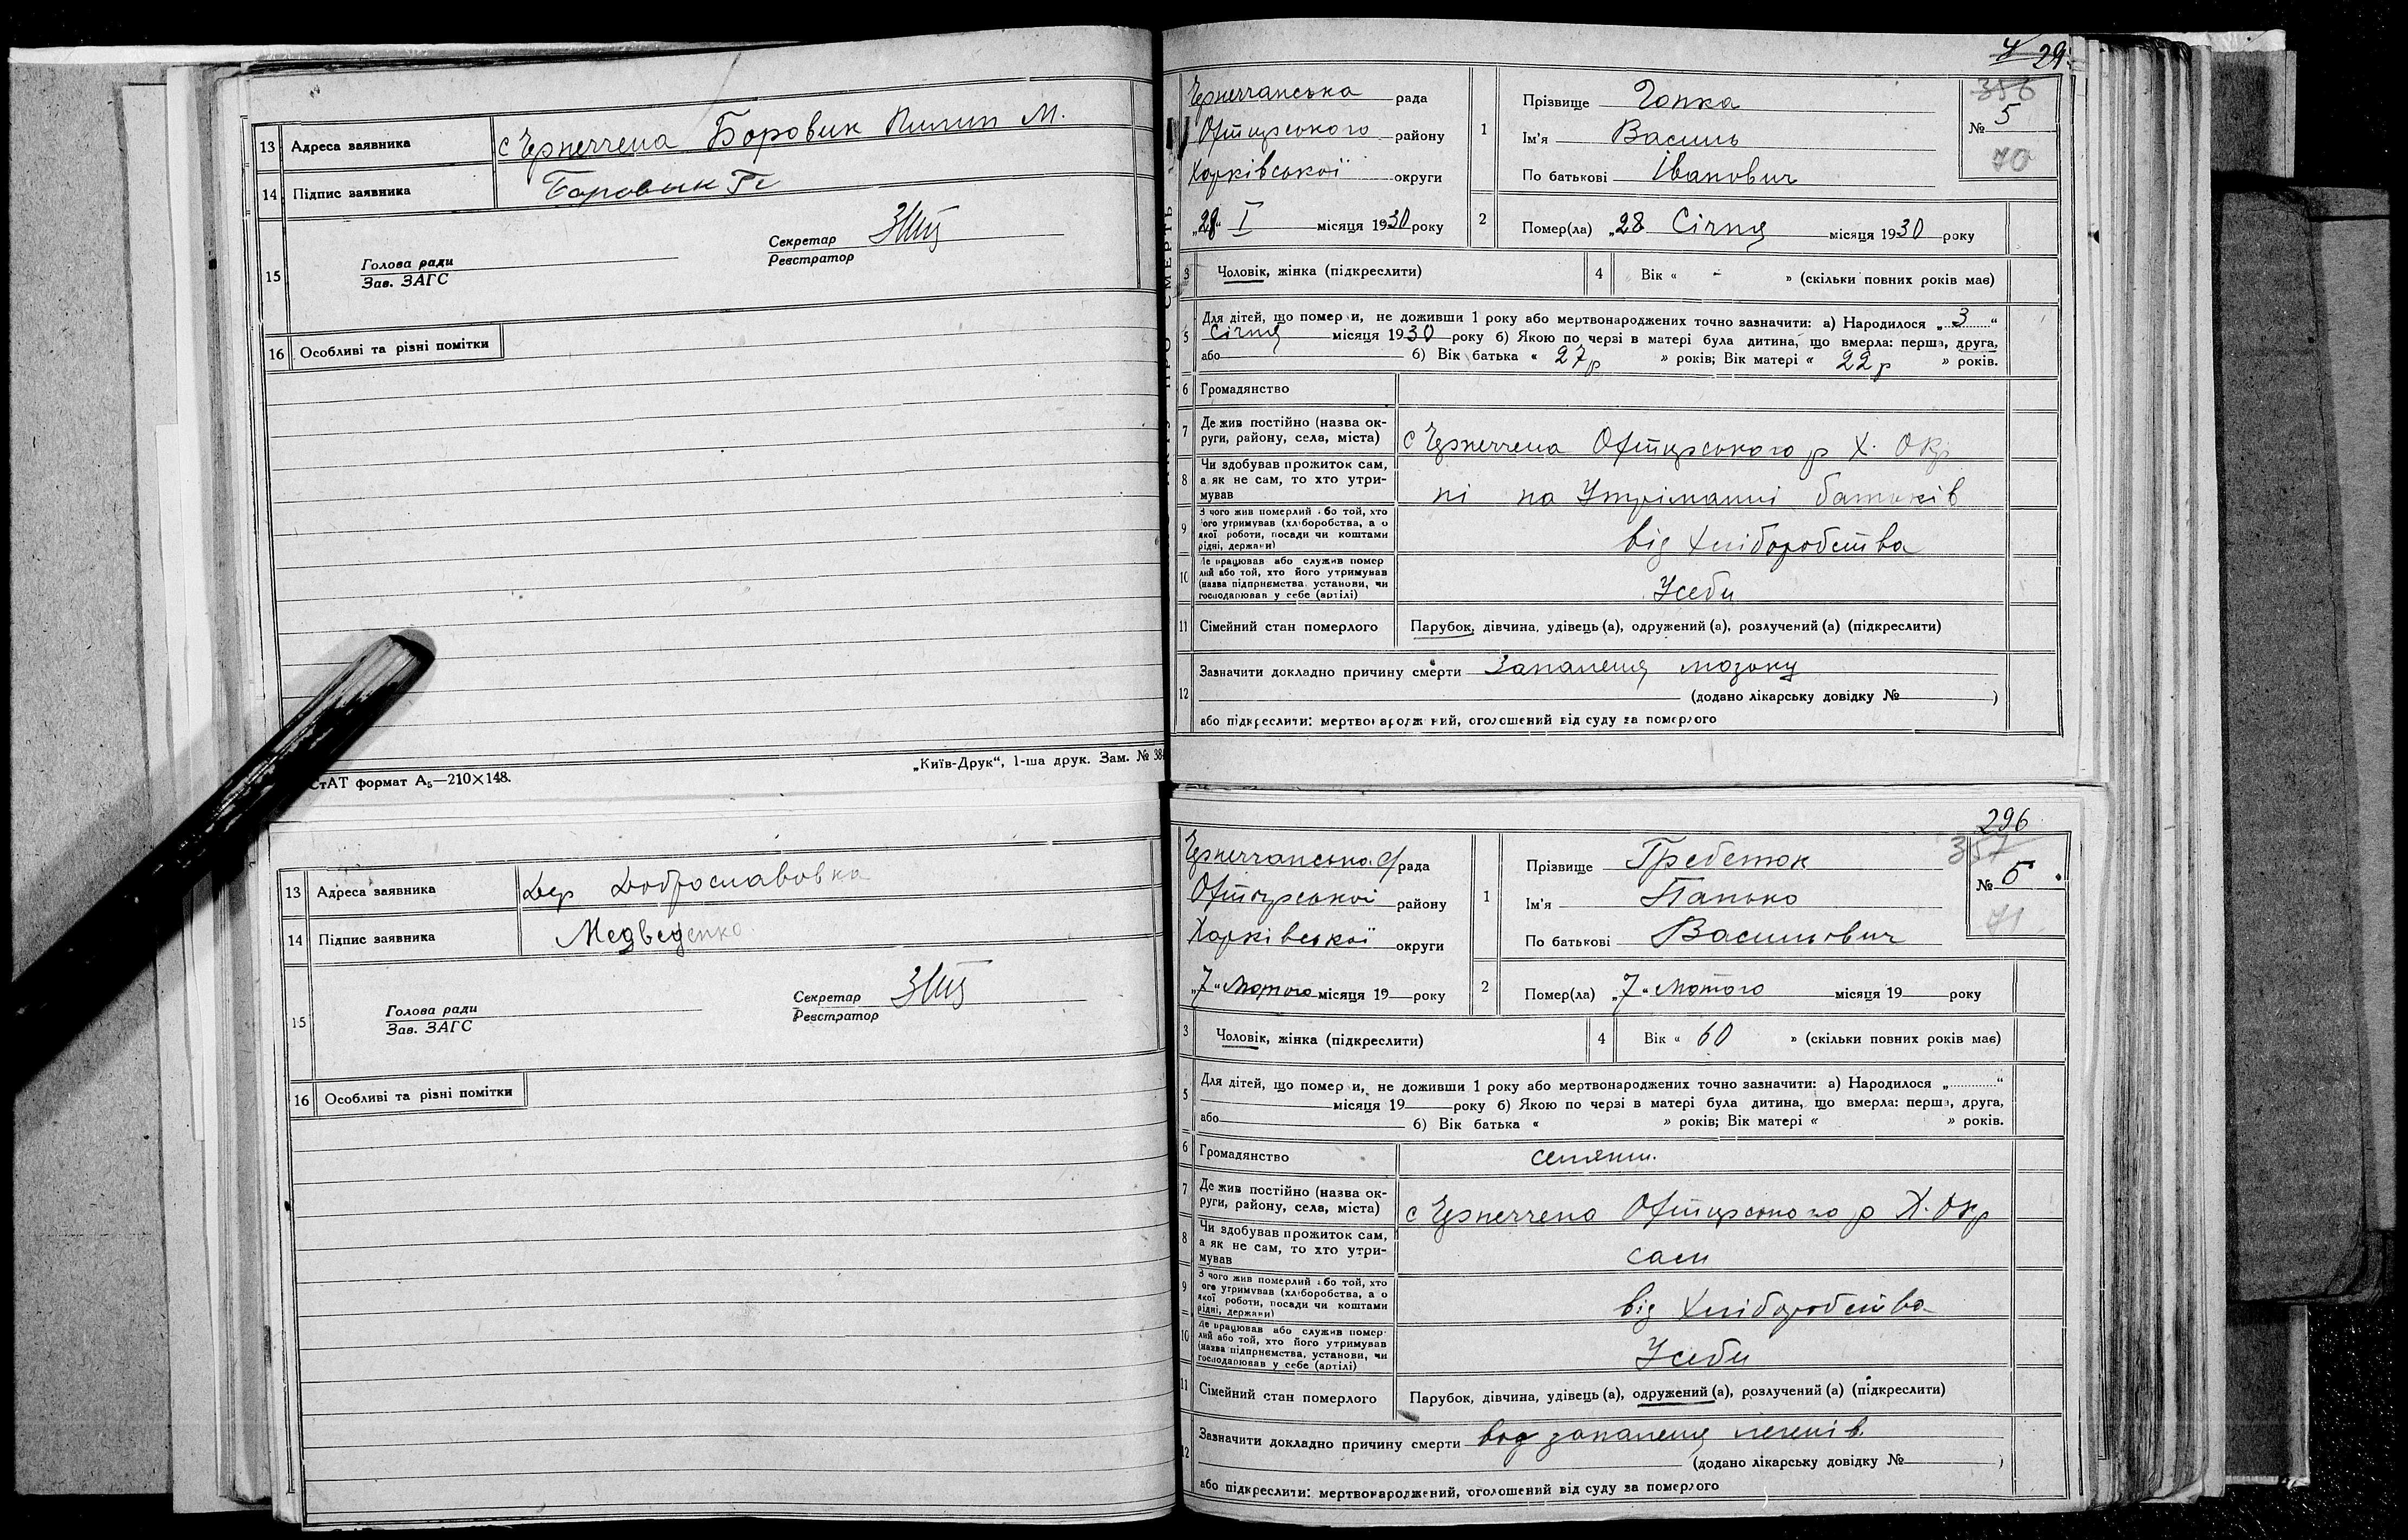 13 Адреса заявника с Чернеччена Боровик Пилип М.
14 Підпис заявника Боровик
Секретар
Реєстратор
15 Голова ради
Зав. ЗАГС
16 Особливі та різні помітки
„Київ-Друк“, 1-ша друк. Зам. № 38
СтАТ формат А₅—210×148.
13 Адреса заявника Дер Доброславовка
14 Підпис заявника Медведенко
Секретар
Реєстратор
15 Голова ради
Зав. ЗАГС
16 Особливі та різні помітки
29
Чернеччанська рада
Охтирського району
Харківської округи
„28“ I місяця 1930 року
1 Прізвище Гопка
Ім'я Василь
По батькові Іванович
356
№ 5
70
2 Помер(ла) „28 Січня місяця 1930 року
3 Чоловік, жінка (підкреслити) 4 Вік « - » (скільки повних років має)
5 Для дітей, що помер и, не доживши 1 року або мертвонароджених точно зазначити: а) Народилося „3“
Січня місяця 1930 року б) Якою по черзі в матері була дитина, що вмерла: перша, друга,
або б) Вік батька « 27р » років; Вік матері « 22р » років.
6 Громадянство
7 Де жив постійно (назва ок-
руги, району, села, міста) с Чернеччена Охтирського р Х. Окр
8 Чи здобував прожиток сам,
а як не сам, то хто утри-
мував ні на Утріманні батьків
9 З чого жив померлий або той, хто
ого утримував (хліборобства, а о
якої роботи, посади чи коштами
рідні, держави) від Хліборобства
10 Де працював або служив помер
лий або той, хто його утримував
(назва підприємства, установи, чи
господарював у себе (артілі) Усебе
11 Сімейний стан померлого Парубок, дівчина, удівець (а), одружений (а), розлучений (а) (підкреслити)
12 Зазначити докладно причину смерти Запаленя мозоку
(додано лікарську довідку № )
або підкреслити: мертвонароджений, оголошений від суду за померлого
296
Чернеччанська с/рада
Охтирської району
Харківської округи
„7“ Лютого місяця 19 року
1 Прізвище Гребенюк
Ім'я Панько
По батькові Васильович
357
№ 6
71
2 Помер(ла) „7“ Лютого місяця 19 року
3 Чоловік, жінка (підкреслити) 4 Вік « 60 » (скільки повних років має)
5 Для дітей, що помер и, не доживши 1 року або мертвонароджених точно зазначити: а) Народилося „ “
місяця 19 року б) Якою по черзі в матері була дитина, що вмерла: перша, друга,
або б) Вік батька « » років; Вік матері « » років.
6 Громадянство селянин.
7 Де жив постійно (назва ок-
руги, району, села, міста) с Чернеччена Охтирського р Х. Окр
8 Чи здобував прожиток сам,
а як не сам, то хто утри-
мував сам
9 З чого жив померлий або той, хто
ого утримував (хліборобства, а о
якої роботи, посади чи коштами
рідні, держави) від Хліборобства
10 Де працював або служив помер
лий або той, хто його утримував
(назва підприємства, установи, чи
господарював у себе (артілі) Усебе
11 Сімейний стан померлого Парубок, дівчина, удівець (а), одружений (а), розлучений (а) (підкреслити)
12 Зазначити докладно причину смерти вод запаленя легенів
(додано лікарську довідку № )
або підкреслити: мертвонароджений, оголошений від суду за померлого